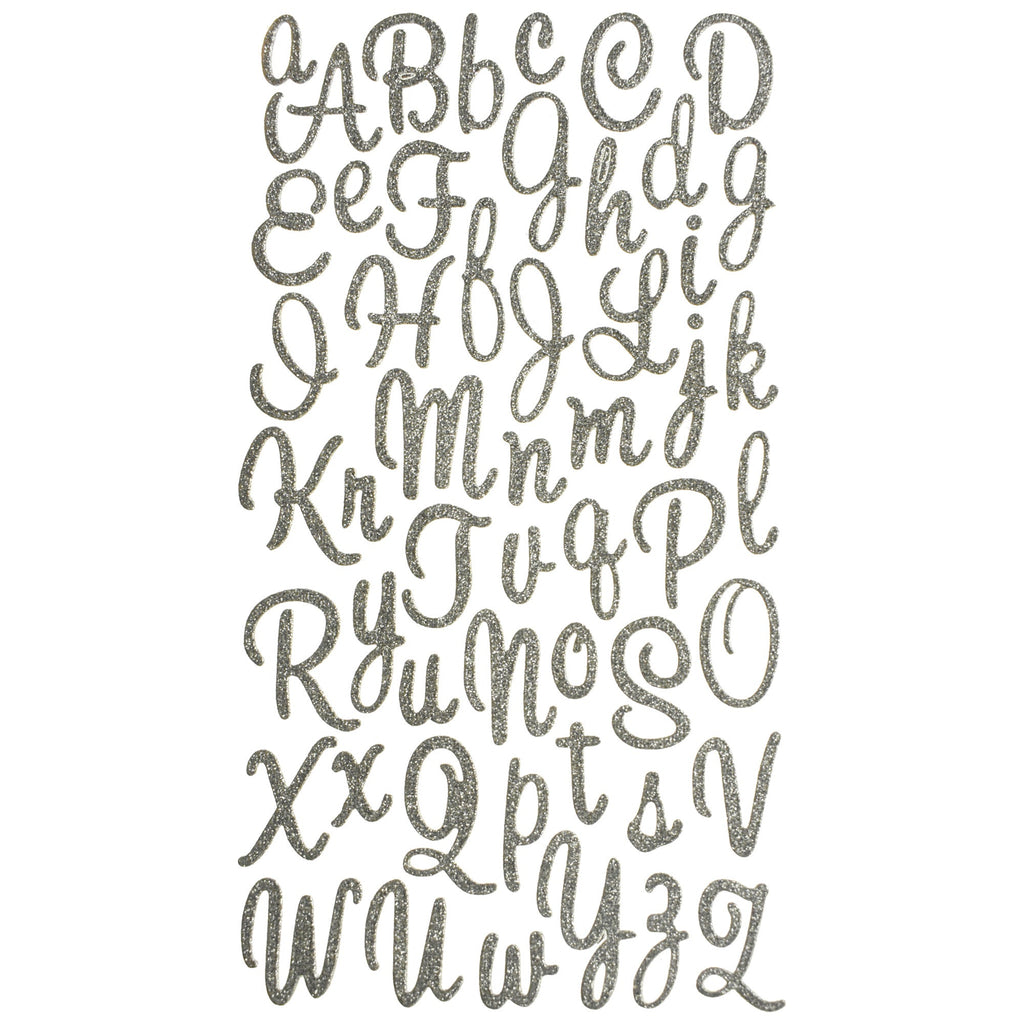 a A B b c C D
E e F G h d g
I H f J L i j k
K r M n m P l
R y T v q O
u N o S
X x Q p t s V
W U w Y z Z